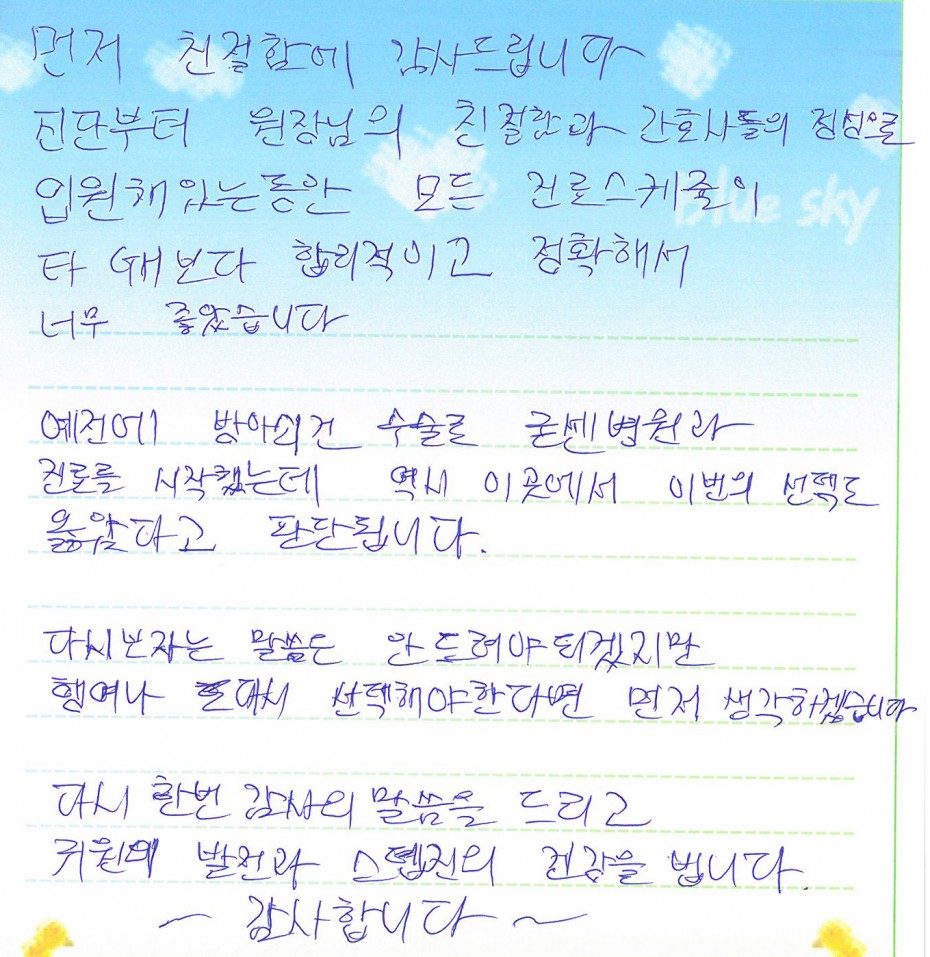 먼저 친절함에 감사드립니다
진단부터 원장님의 친절함과 간호사들의 정성으로
입원해있는동안 모든 진료스케줄이
타 G보다 합리적이고 정확해서
너무 좋았습니다
blue sky
예전에 방아쇠건 수술로 굳센병원과
진료를 시작했는데 역시 이곳에서 이번의 선택도
옳았다고 판단됩니다.
다시보자는 말씀은 안드려야되겠지만
행여나 또다시 선택해야한다면 먼저 생각하겠습니다
다시 한번 감사의 말씀을 드리고
귀원의 발전과 스텝진의 건강을 빕니다.
~ 감사합니다 ~